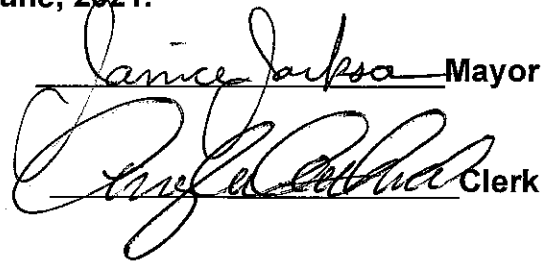 June, 2021.
Janice Jackson Mayor
Clerk